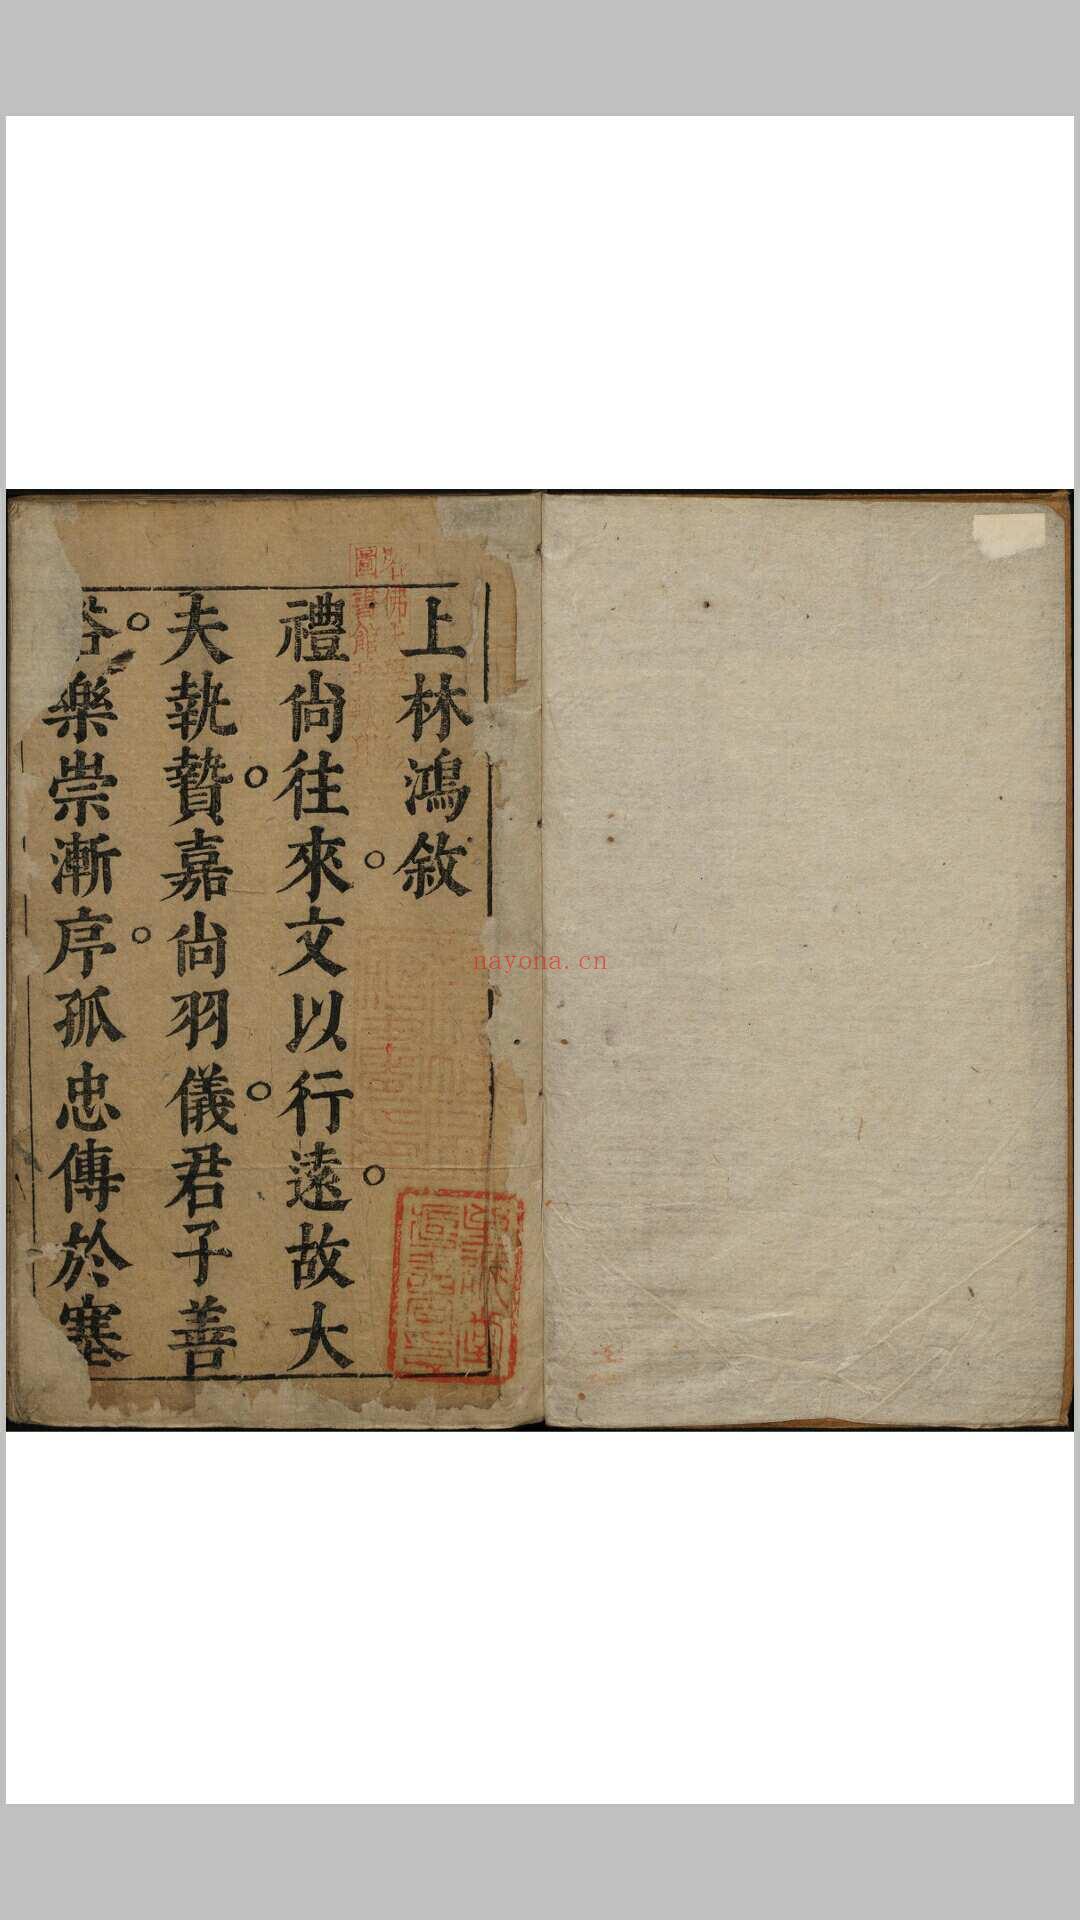 上林鴻敘
禮尙往來。文以行遠。故大
夫執贄。嘉尙羽儀。君子善
樂崇漸序。孤忠傳於塞
nayona.cn